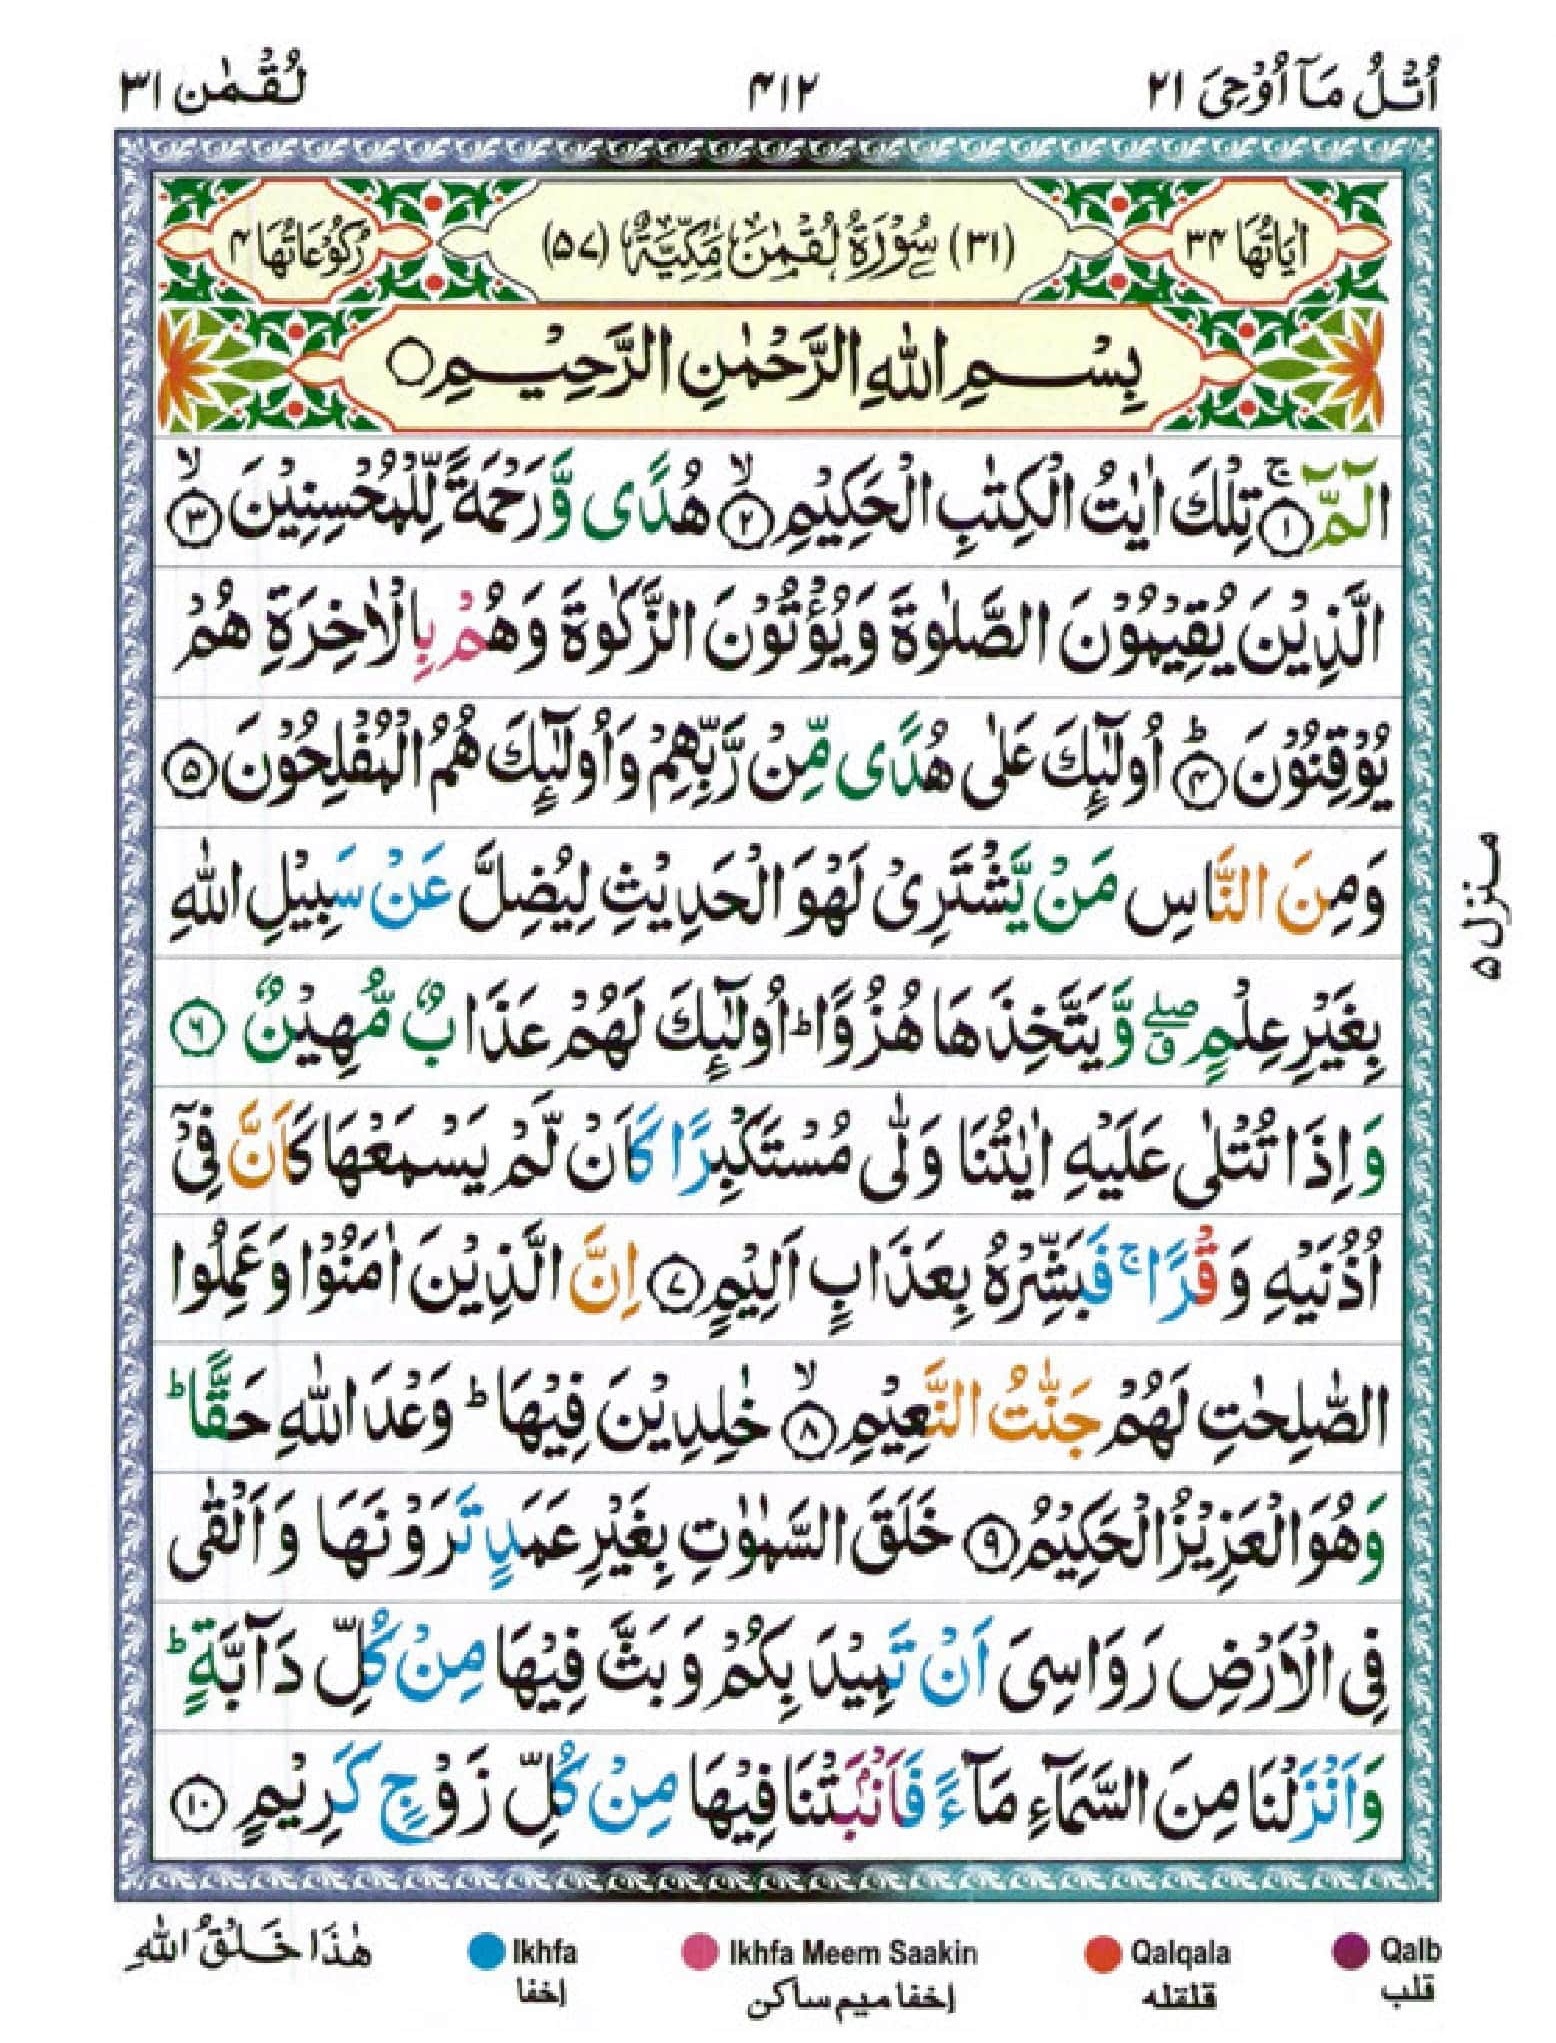 اُتْلُ مَاۤ اُوْحِیَ ۲۱
۴۱۲
لُقْمٰن ۳۱
اٰیَاتُهَا ۳۴
(۳۱) سُوْرَةُ لُقْمٰنَ مَكِّیَّةٌ (۵۷)
رُكُوْعَاتُهَا ۴
بِسْمِ اللّٰهِ الرَّحْمٰنِ الرَّحِیْمِ○
الٓمّٓ ۚ﴿۱﴾ تِلْكَ اٰیٰتُ الْكِتٰبِ الْحَكِیْمِ ۙ﴿۲﴾ هُدًی وَّ رَحْمَةً لِّلْمُحْسِنِیْنَ ۙ﴿۳﴾
الَّذِیْنَ یُقِیْمُوْنَ الصَّلٰوةَ وَیُؤْتُوْنَ الزَّكٰوةَ وَهُمْ بِالْاٰخِرَةِ هُمْ
یُوْقِنُوْنَ ؕ﴿۴﴾ اُولٰٓىِٕكَ عَلٰی هُدًی مِّنْ رَّبِّهِمْ وَاُولٰٓىِٕكَ هُمُ الْمُفْلِحُوْنَ ﴿۵﴾
وَمِنَ النَّاسِ مَنْ یَّشْتَرِیْ لَهْوَ الْحَدِیْثِ لِیُضِلَّ عَنْ سَبِیْلِ اللّٰهِ
بِغَیْرِ عِلْمٍ ۖق وَّ یَتَّخِذَهَا هُزُوًا ؕ اُولٰٓىِٕكَ لَهُمْ عَذَابٌ مُّهِیْنٌ ﴿۶﴾
وَ اِذَا تُتْلٰی عَلَیْهِ اٰیٰتُنَا وَلّٰی مُسْتَكْبِرًا كَاَنْ لَّمْ یَسْمَعْهَا كَاَنَّ فِیْۤ
اُذُنَیْهِ وَقْرًا ۚ فَبَشِّرْهُ بِعَذَابٍ اَلِیْمٍ ﴿۷﴾ اِنَّ الَّذِیْنَ اٰمَنُوْا وَعَمِلُوا
الصّٰلِحٰتِ لَهُمْ جَنّٰتُ النَّعِیْمِ ۙ﴿۸﴾ خٰلِدِیْنَ فِیْهَا ؕ وَعْدَ اللّٰهِ حَقًّا ؕ
وَهُوَ الْعَزِیْزُ الْحَكِیْمُ ﴿۹﴾ خَلَقَ السَّمٰوٰتِ بِغَیْرِ عَمَدٍ تَرَوْنَهَا وَ اَلْقٰی
فِی الْاَرْضِ رَوَاسِیَ اَنْ تَمِیْدَ بِكُمْ وَ بَثَّ فِیْهَا مِنْ كُلِّ دَآبَّةٍ ؕ
وَ اَنْزَلْنَا مِنَ السَّمَآءِ مَآءً فَاَنْۢبَتْنَا فِیْهَا مِنْ كُلِّ زَوْجٍ كَرِیْمٍ ﴿۱۰﴾
منزل ۵
هٰذَا خَلْقُ اللّٰهِ
Ikhfa
إخفا
Ikhfa Meem Saakin
إخفا میم ساكن
Qalqala
قلقله
Qalb
قلب